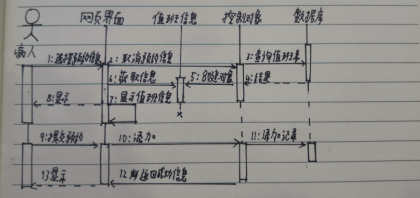 网页界面 值班信息 控制对象 数据库
病人
1:选择预约信息
2:取消预约信息
3:查询值班表
4:结果
5:创建对象
6:获取信息
7:显示值班信息
8:显示
9:提交预约
10:添加
11:添加记录
12:
13显示